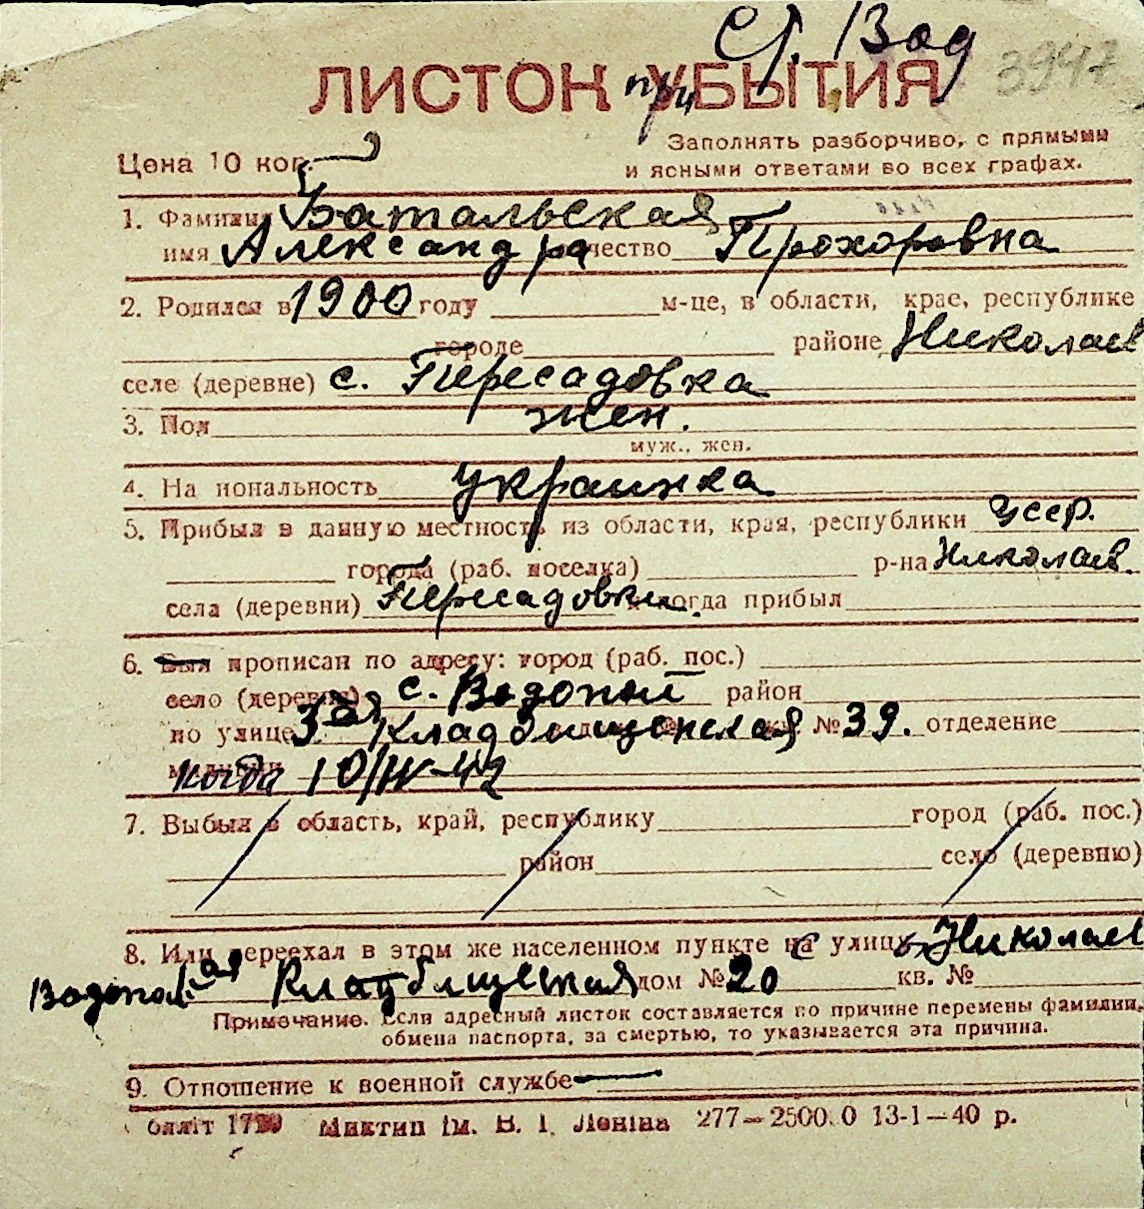 Ст. Вод
ЛИСТОК при УБЫТИЯ 3947
Заполнять разборчиво, с прямыми
Цена 10 коп.
и ясными ответами во всех графах.
1. Фамилия Батальская
имя Александра чество Прохоровна
2. Родился в 1900 году м-це, в области, крае, республике
городе районе Николаев
селе (деревне) с. Пересадовка
3. Пол жен.
муж., жен.
4. На иональность украинка
5. Прибыл в данную местность из области, края, республики усср.
города (раб. поселка) р-на Николаев.
села (деревни) Пересадовки. когда прибыл
6. Был прописан по адресу: город (раб. пос.)
село (деревня) с. Водопой район
по улице 3ая Кладбищенская № 39. отделение
милиции когда 10/IV-42
7. Выбыл в область, край, республику город (раб. пос.)
район село (деревню)
8. Или переехал в этом же населенном пункте на с улицы Николаев
Водопой 1ая Кладбищеная дом № 20 кв. №
Примечание. Если адресный листок составляется по причине перемены фамилии,
обмена паспорта, за смертью, то указывается эта причина.
9. Отношение к военной службе —
блліт Миктип ім. В. І. Леніна 277—2500.0 13-1—40 р.